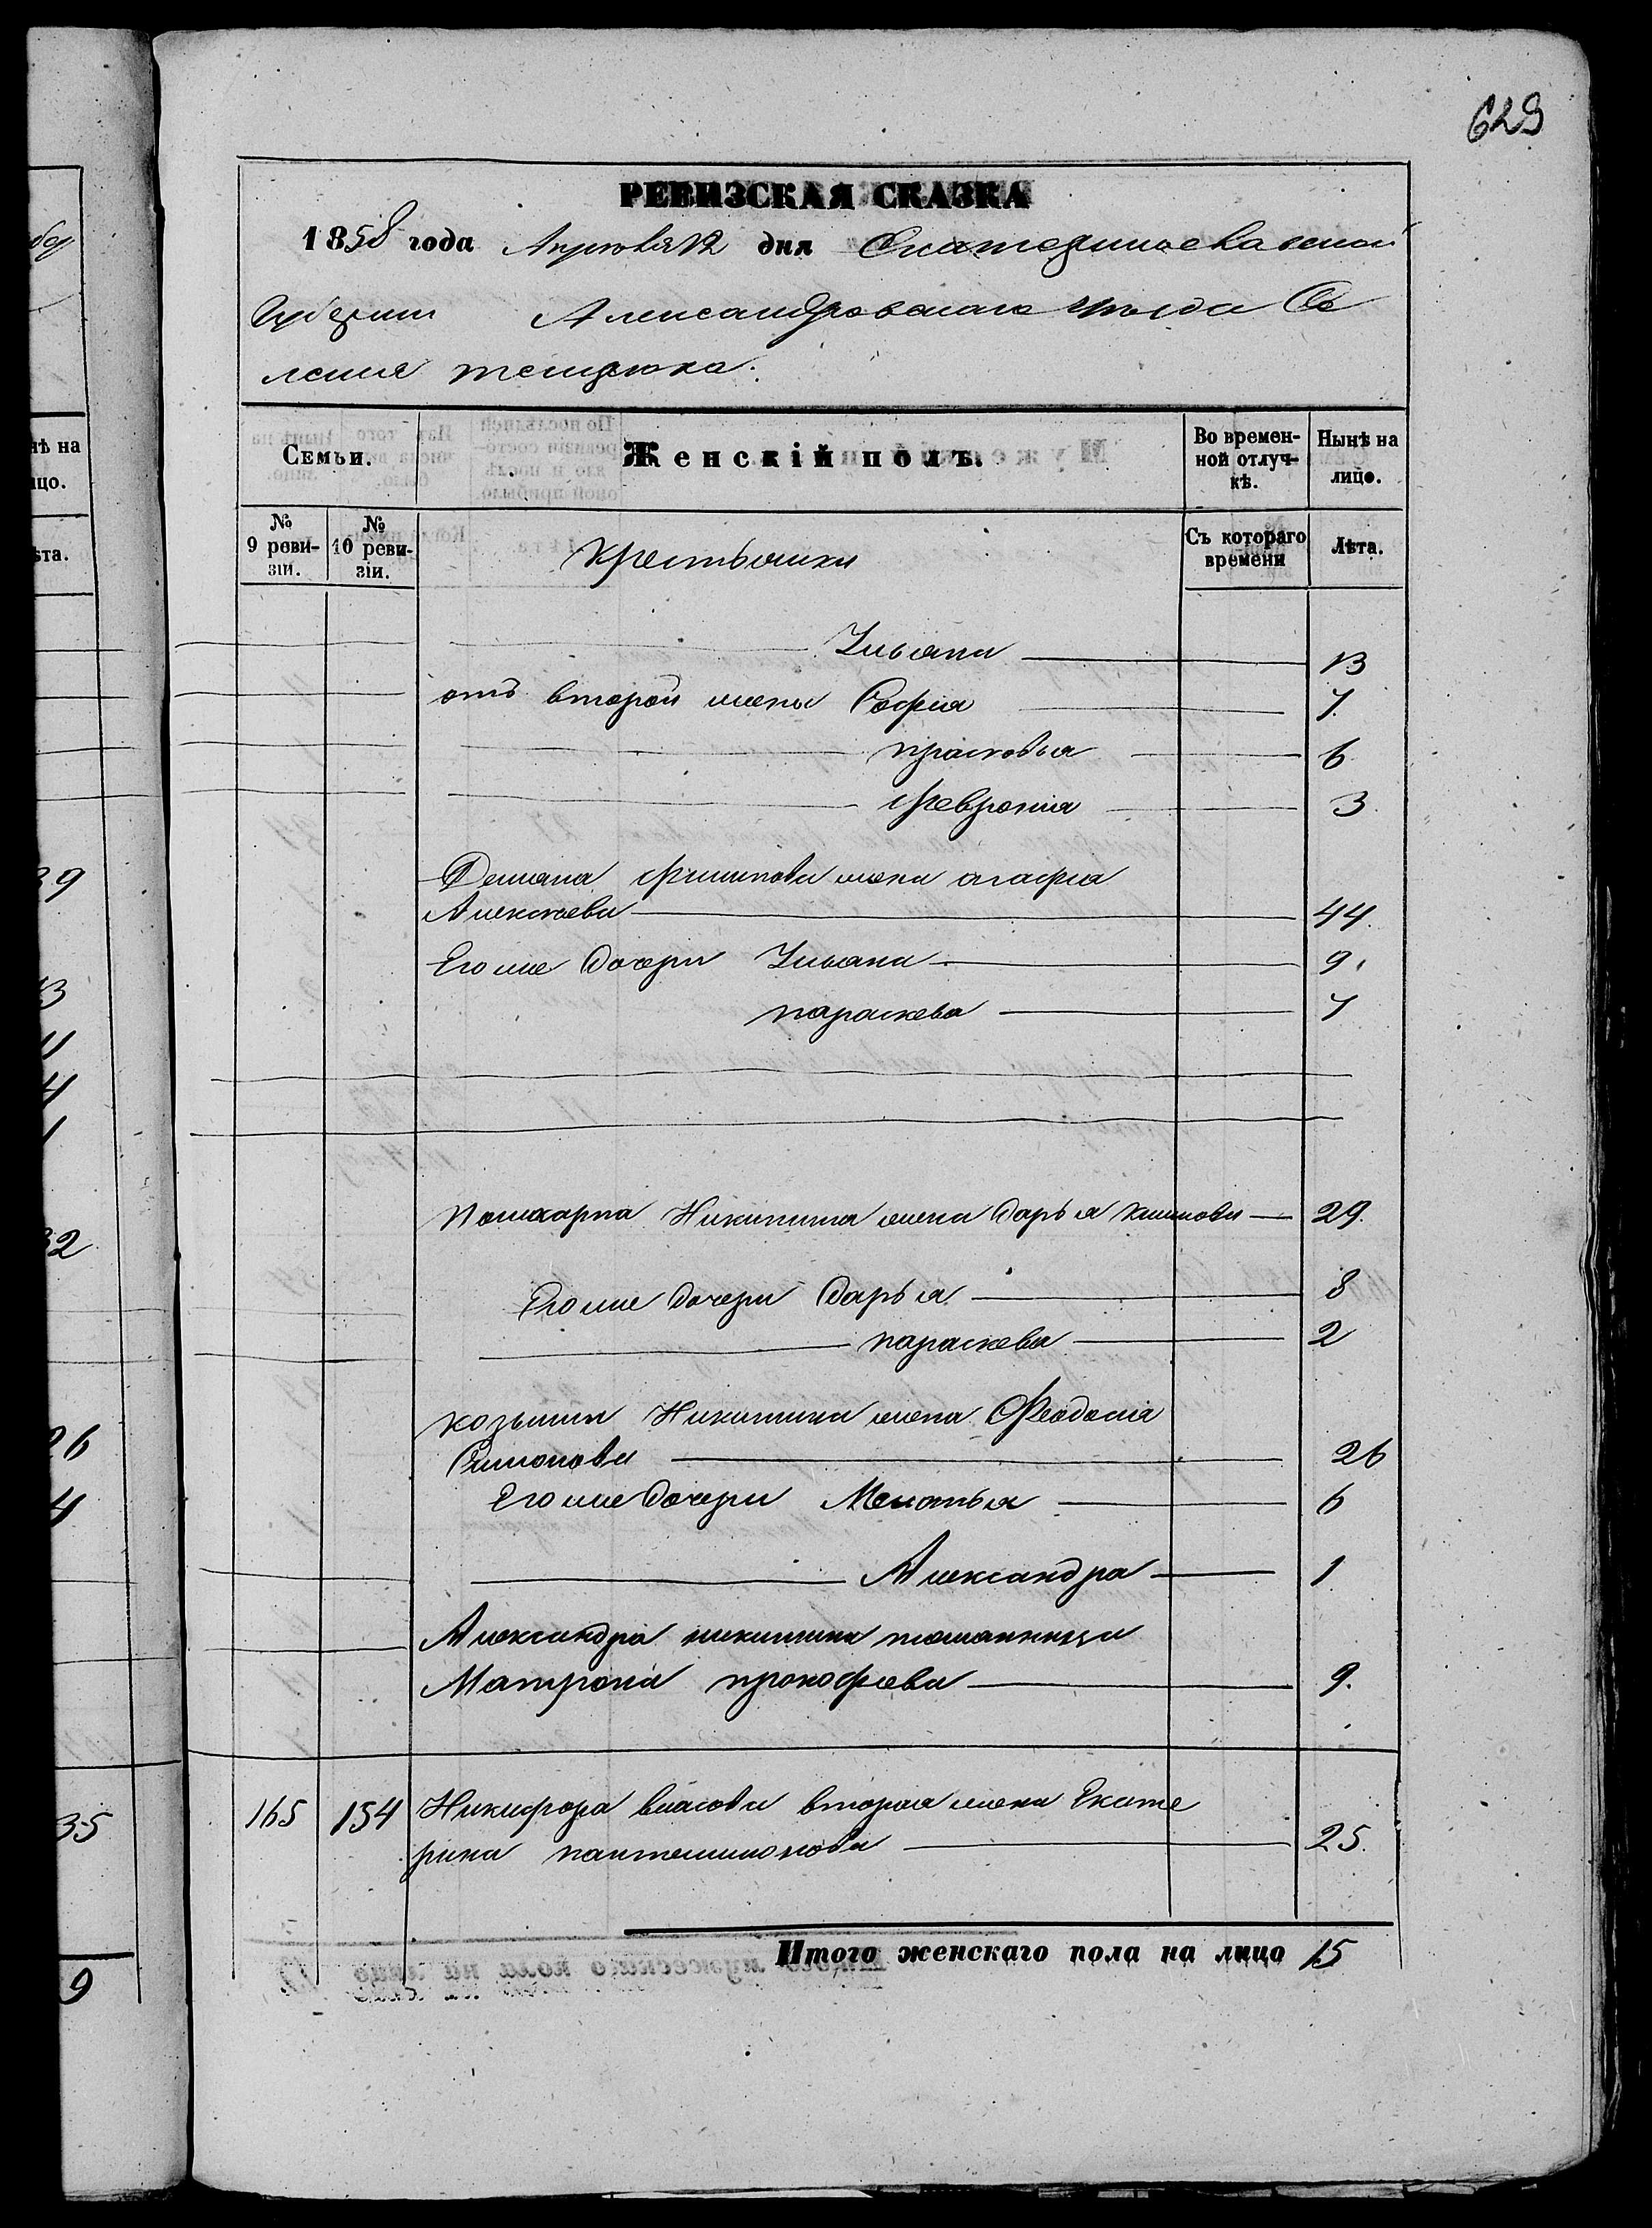 629
РЕВИЗСКАЯ СКАЗКА
1858 года Апреля 12 дня Екатеринославской
Губернии Александровскаго уезда Се
ления
Семьи.
Женскій полъ.
Во времен-
ной отлуч-
кѣ.
Нынѣ на
лицо.
№
9 реви-
зіи.
№
10 реви-
зіи.
Крестьянки
Съ котораго
времени
Лѣта.
Ульяна 13
отъ второй жены Софія 7
прасковья 6
Феврония 3
Демьяна Филипова жена агафья
Алексѣева 44.
Его же дочери Ульяна 9.
параскева 7
поликарпа Никитина жена Дарья климова 29.
Его же дочери Дарья 8
параскева 2
козьмы Никитина жена Феодосія
Симонова 26
Его же дочери Меланья 6
Александра 1
Александра никитина племянница
Матрона прокофьева 9.
165 154 Никифора власова вторая жена Екате
рина пантелимонова 25.
Итого женскаго пола на лицо 15
нѣ на
ицо.
ѣта.
39
13
11
4
1
32
26
4
35
9